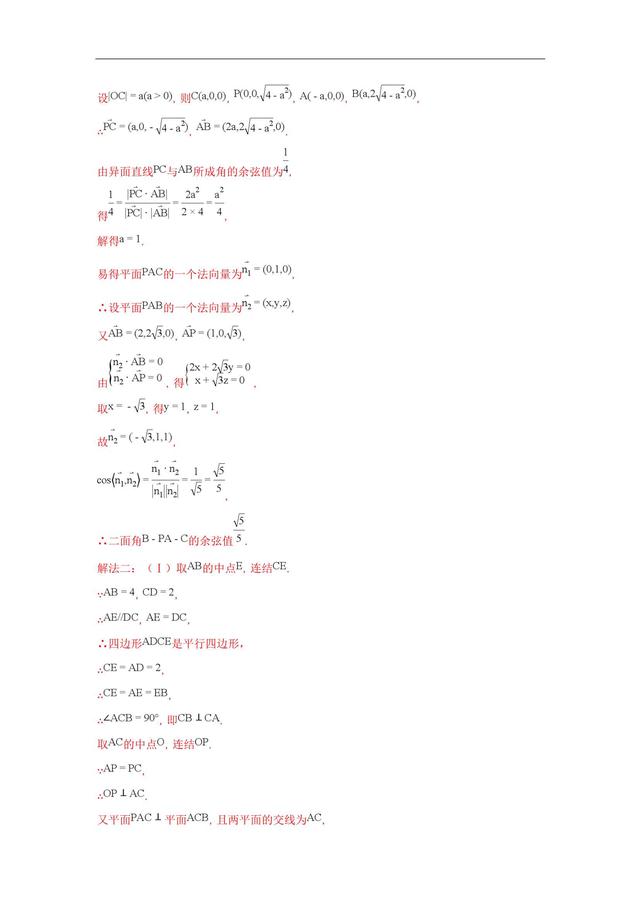 设|OC| = a(a > 0), 则C(a,0,0), P(0,0,√(4 - a²)), A( - a,0,0), B(a,2√(4 - a²),0),
∴PC⃗ = (a,0, - √(4 - a²)), AB⃗ = (2a,2√(4 - a²),0).
由异面直线PC与AB所成角的余弦值为1/4,
得1/4 = |PC⃗ · AB⃗|/(|PC⃗| · |AB⃗|) = 2a²/(2 × 4) = a²/4,
解得a = 1.
易得平面PAC的一个法向量为n₁⃗ = (0,1,0),
∴设平面PAB的一个法向量为n₂⃗ = (x,y,z),
又AB⃗ = (2,2√3,0), AP⃗ = (1,0,√3),
由{n₂⃗ · AB⃗ = 0, n₂⃗ · AP⃗ = 0, 得{2x + 2√3y = 0, x + √3z = 0,
取x = - √3, 得y = 1, z = 1,
故n₂⃗ = ( - √3,1,1),
cos⟨n₁⃗,n₂⃗⟩ = (n₁⃗ · n₂⃗)/(|n₁⃗||n₂⃗|) = 1/√5 = √5/5,
∴二面角B - PA - C的余弦值√5/5.
解法二:（Ⅰ）取AB的中点E, 连结CE.
∵AB = 4, CD = 2,
∴AE//DC, AE = DC,
∴四边形ADCE是平行四边形,
∴CE = AD = 2,
∴CE = AE = EB,
∴∠ACB = 90°, 即CB⊥CA.
取AC的中点O, 连结OP.
∵AP = PC,
∴OP⊥AC.
又平面PAC⊥平面ACB, 且两平面的交线为AC,